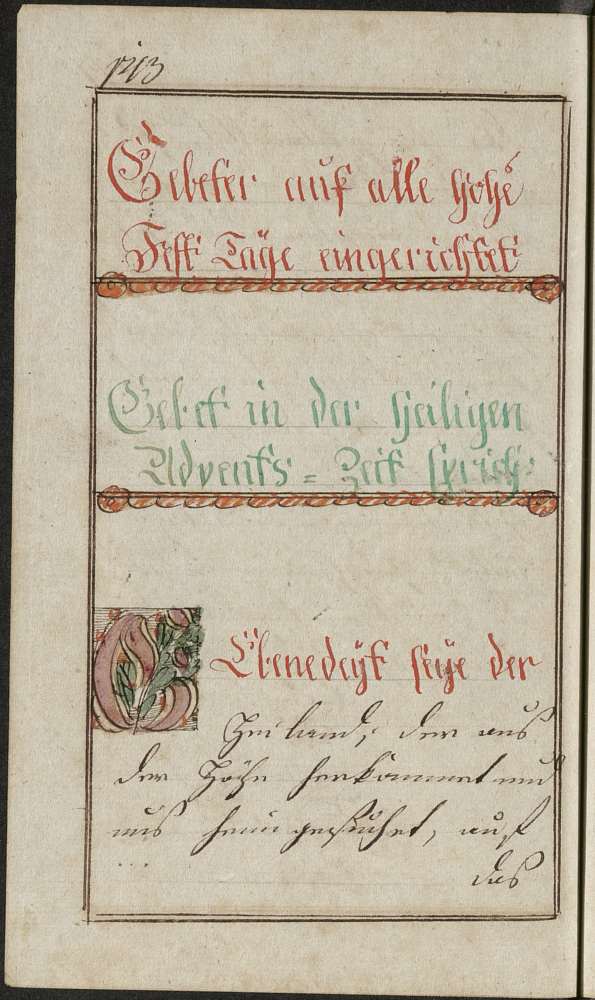 Gebeter auf alle hohe
Fest Täge eingerichtet
Gebet in der heiligen
Advents = Zeit sprich:
GEbenedeyt seÿe der
Heiland, der aus
der Höhe herkommet und
uns heimgesuchet, auf
das